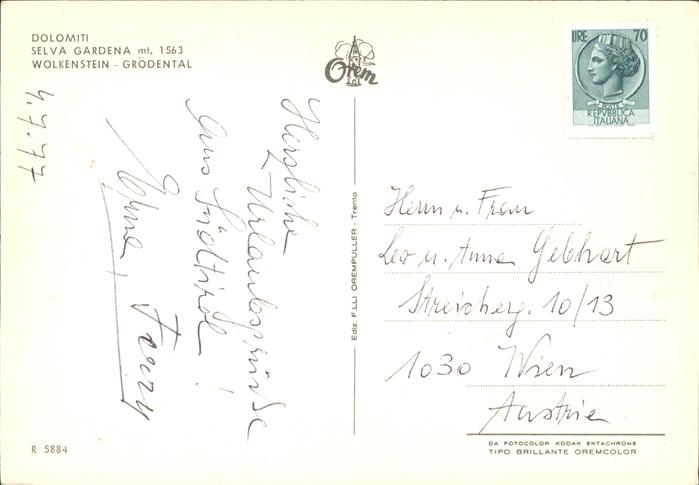 DOLOMITI
SELVA GARDENA mt. 1563
WOLKENSTEIN - GRÖDENTAL
4.7.77
Herzliche
Urlaubsgrüße
aus Südtirol!
Ferry
R 5884
Orem
Ediz. F.LLI OREMPULLER - Trento
LIRE 70
POSTE
REPVBBLICA
ITALIANA
Herrn u. Frau
Leo u. Anna Gebhart
Streicherg. 10/13
1030 Wien
Austria
DA FOTOCOLOR KODAK EKTACHROME
TIPO BRILLANTE OREMCOLOR